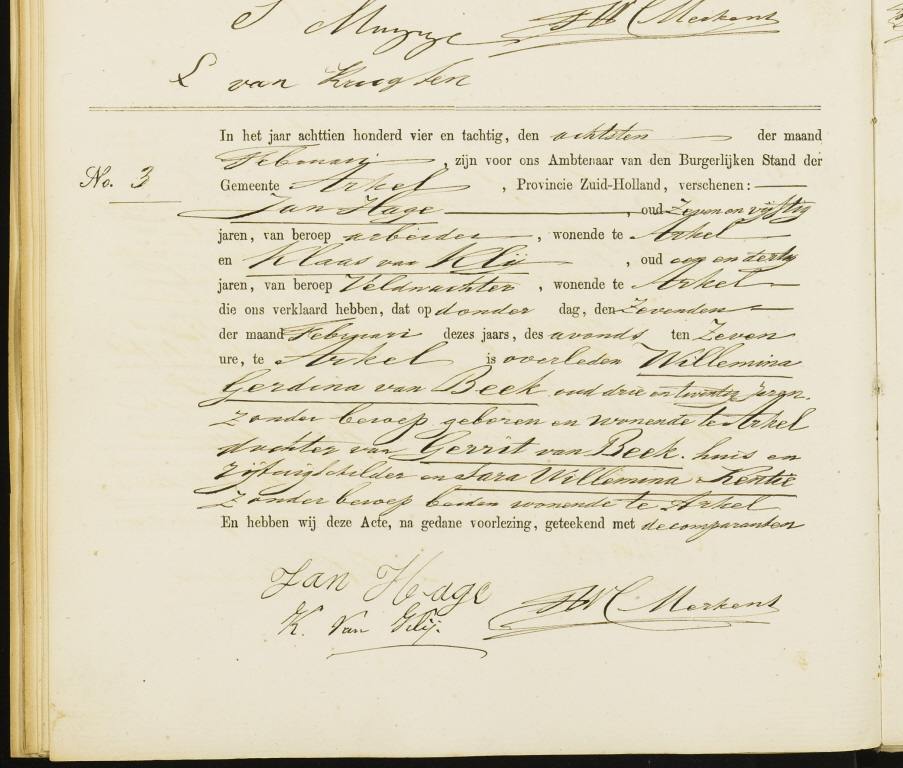 S Muijze FWC Merkent
L van Krugten
In het jaar achttien honderd vier en tachtig, den achtsten der maand
No. 3
Februari, zijn voor ons Ambtenaar van den Burgerlijken Stand der
Gemeente Arkel, Provincie Zuid-Holland, verschenen:
Jan Hage, oud Zeven en vijftig
jaren, van beroep arbeider, wonende te Arkel
en Klaas van Klij, oud een en dertig
jaren, van beroep Veldwachter, wonende te Arkel
die ons verklaard hebben, dat op donder dag, den Zevenden
der maand Februari dezes jaars, des avonds ten Zeven
ure, te Arkel is overleden Willemina
Gerdina van Beek oud drie en twintig jaren.
Zonder beroep geboren en wonende te Arkel
dochter van Gerrit van Beek. huis en
rijtuigschilder en Sara Willemina Kentie
Zonder beroep beiden wonende te Arkel
En hebben wij deze Acte, na gedane voorlezing, geteekend met de comparanten
Jan Hage
K. van Klij. FWC Merkent